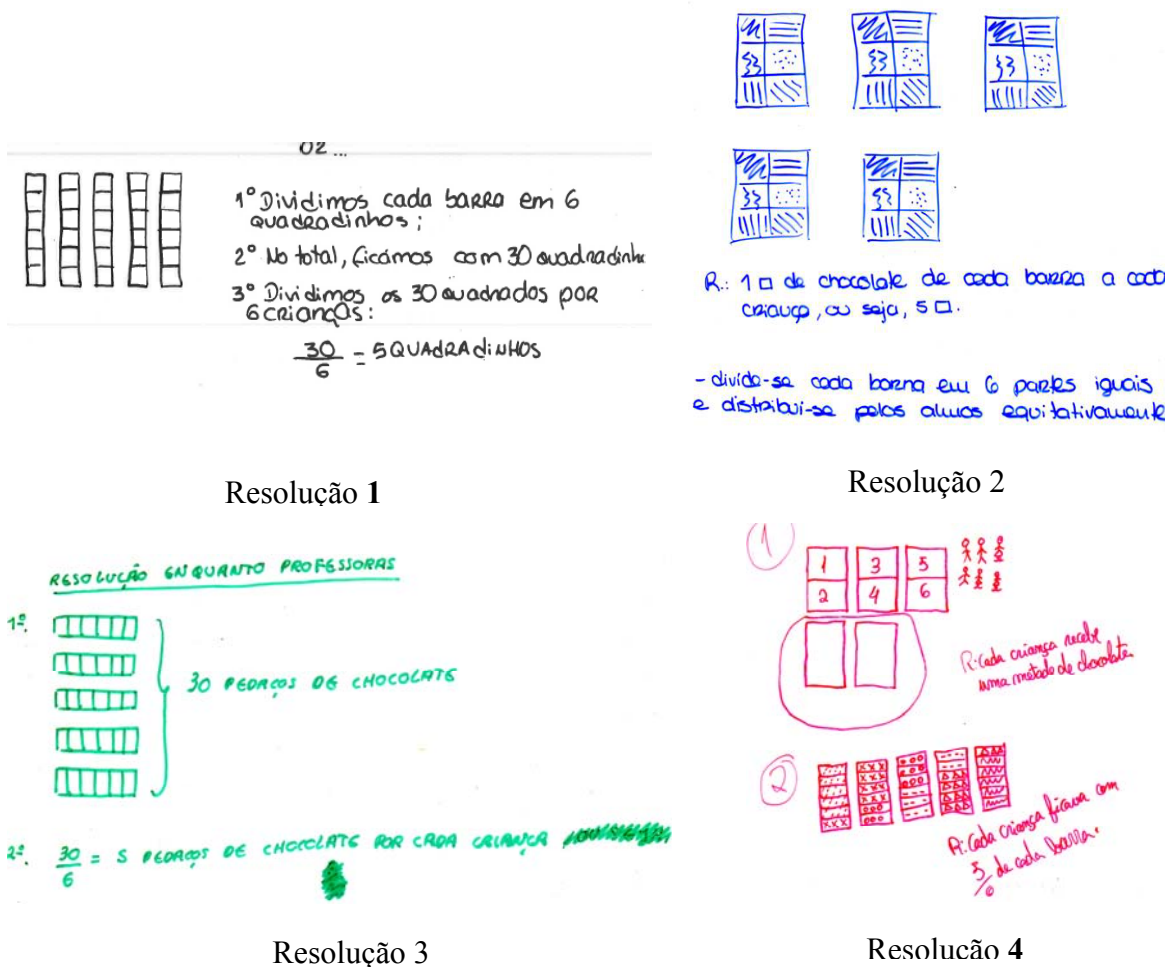 02 ...
1º Dividimos cada barra em 6
quadradinhos;
2º No total, ficámos com 30 quadradinh
3º Dividimos os 30 quadrados por
6 crianças:
30/6 = 5 QUADRADINHOS
Resolução 1
R.: 1 □ de chocolate de cada barra a cada
criança, ou seja, 5 □.
- divide-se cada barra em 6 partes iguais
e distribui-se pelos alunos equitativamente
Resolução 2
RESOLUÇÃO ENQUANTO PROFESSORAS
1º.
30 PEDAÇOS DE CHOCOLATE
2º. 30/6 = 5 PEDAÇOS DE CHOCOLATE POR CADA CRIANÇA
Resolução 3
1
1 3 5
2 4 6
R: Cada criança recebe
uma metade de chocolate.
2
R: Cada criança ficava com
5/6 de cada barra.
Resolução 4